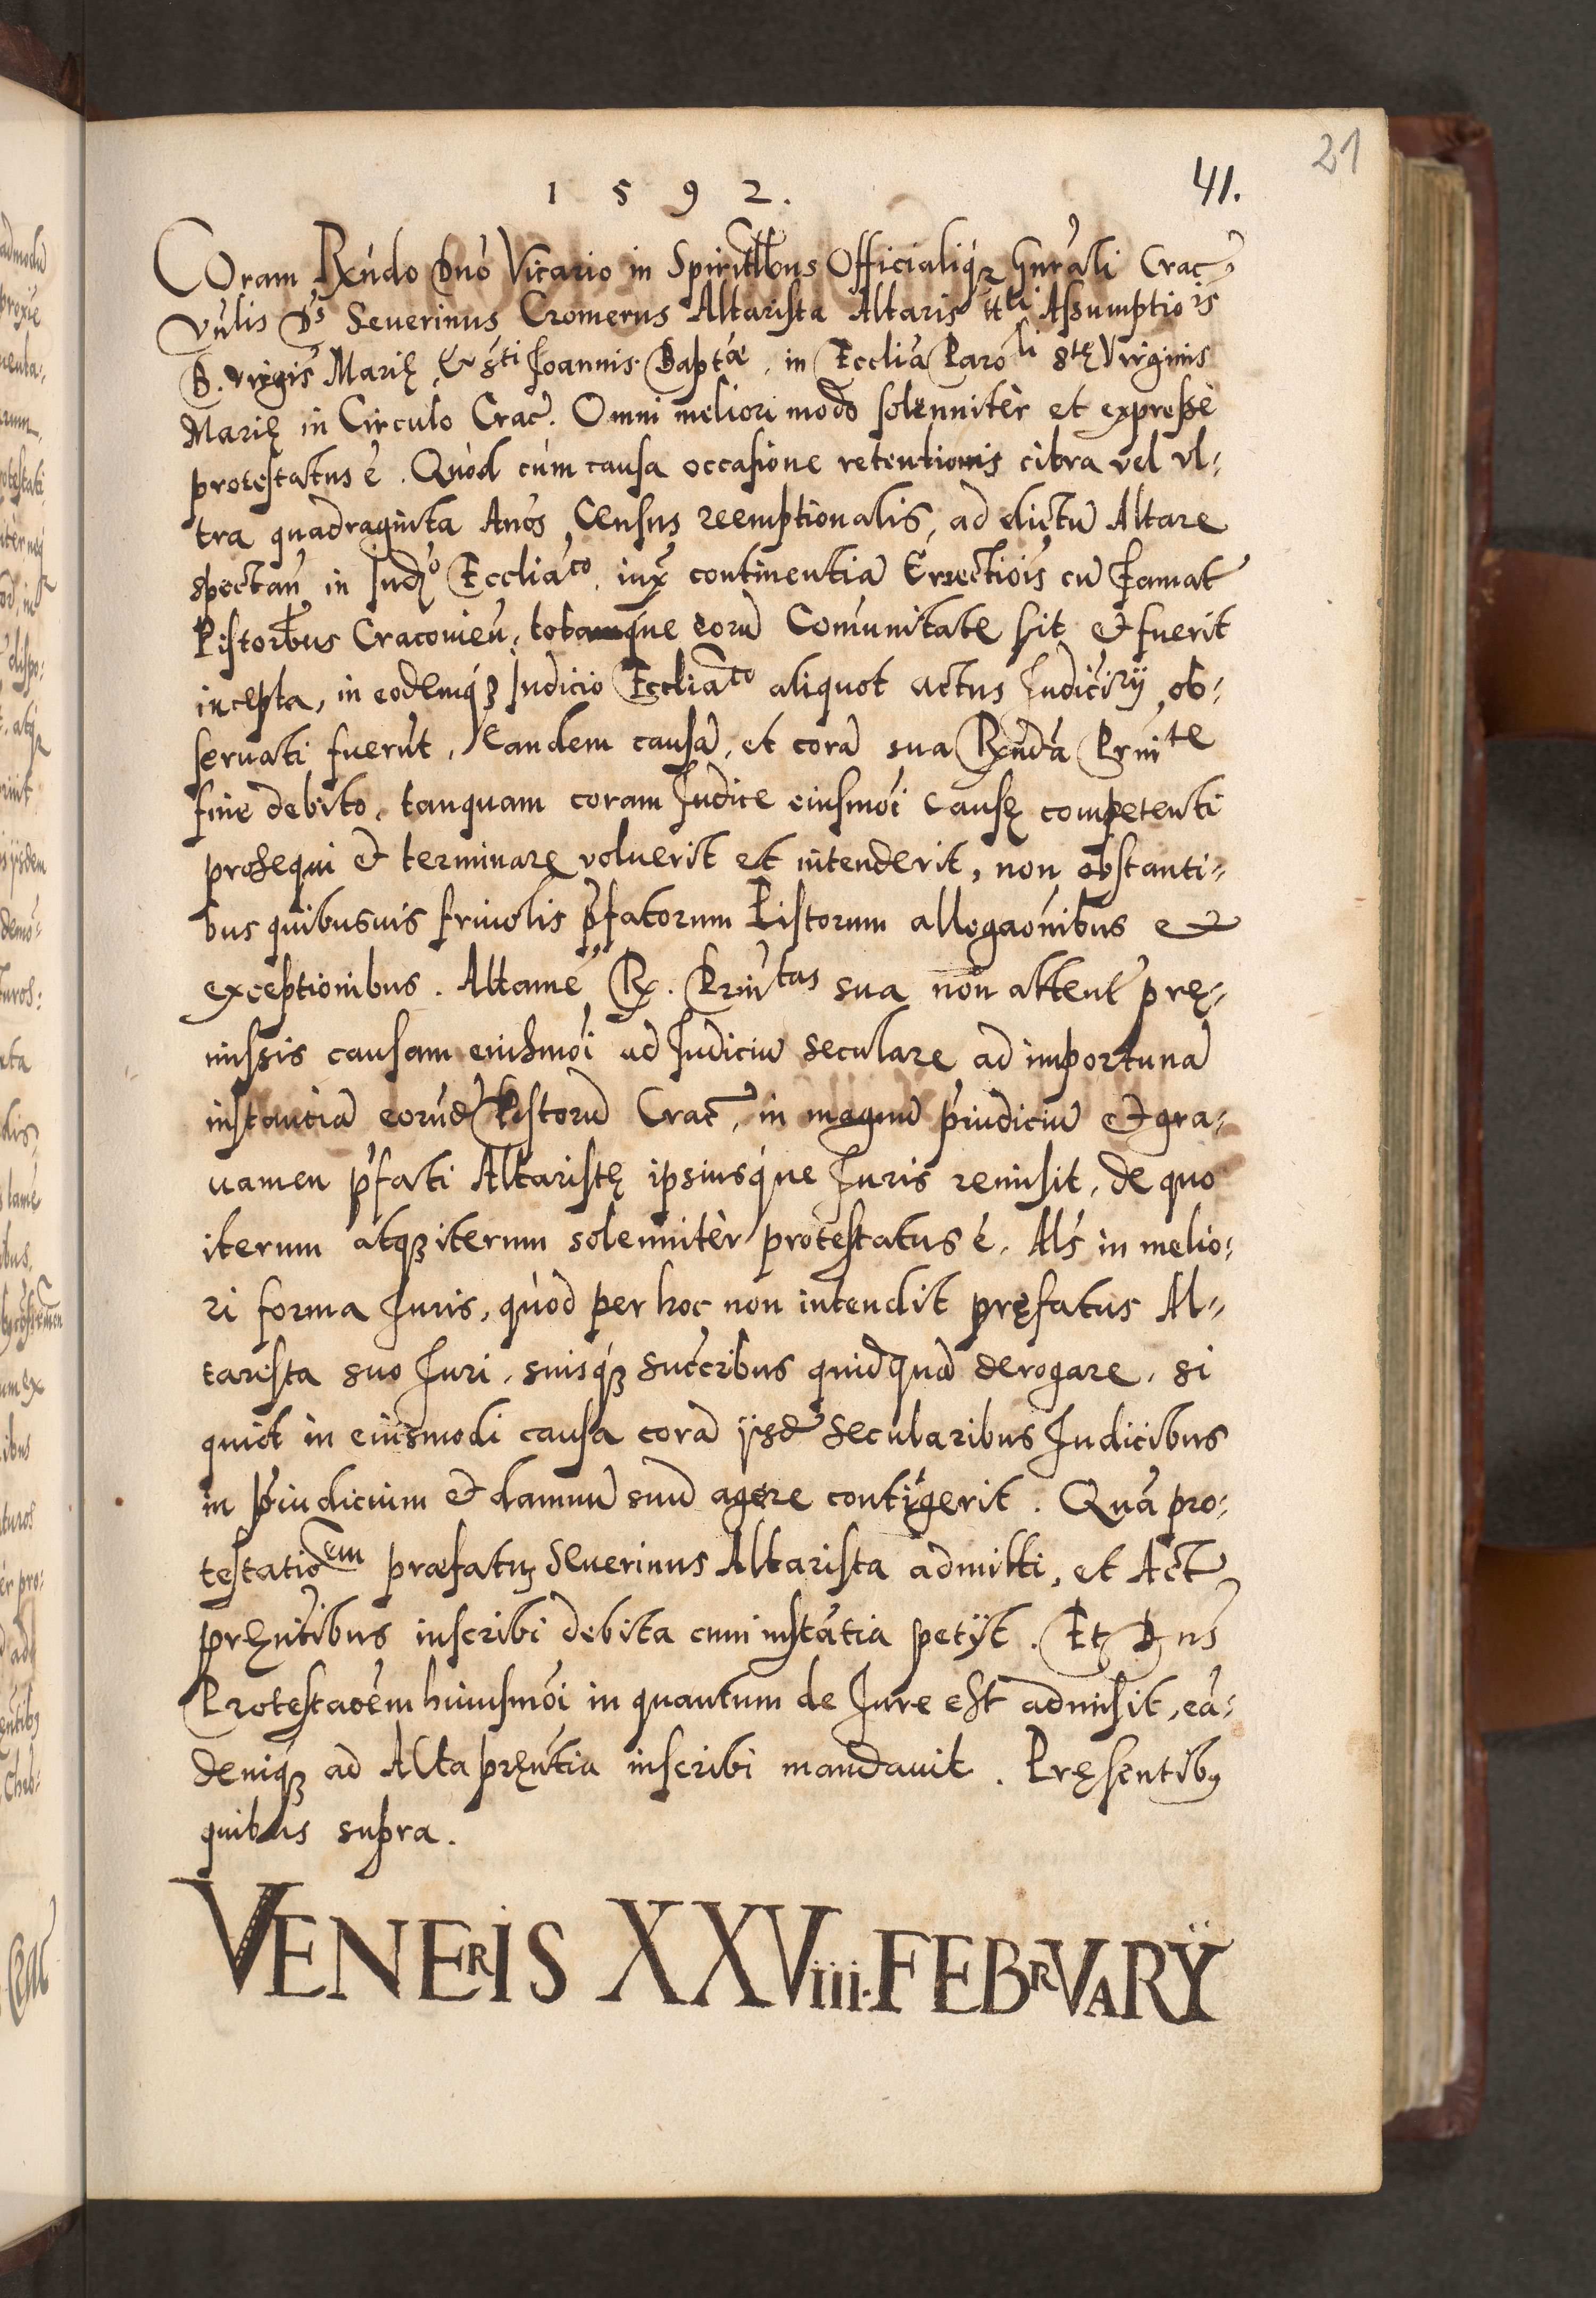 21
1 5 9 2.
41.
COram Rndo Dnó Vicario in Spiritlbus Officialiq́ȝ Gnráli Crac̃
Vnlis Ds Seuerinus Cromerus Altarista Altaris ttli Assumptiois
B. Virgis Marię, & Sti Joannis Baptæ, in Ecclia Paroli Stę Virginis
Marię in Circulo Crac̃. Omni meliori modo solenniter et expressè
protestatus ẽ. Quòd cùm causa occasione retentionis citra vel vl-
tra quadraginta Anos, Census reemptionalis, ad dictũ Altare
spectañ in Judo Ecclicoꝰ, iux̃ continentiã Erectiois cũ Famat̃
Pistoribus Cracouieñ, totaque eorũ Comunitate sit & fuerit
incepta, in eodemq́ȝ Judicio Eccliatico aliquot actus Judiciry ob-
seruati fuerũt, Eandem causã, et corã sua Rnda Prnite
fine debito, tanquam coram Judice eiusmoi causę competenti
prosequi & terminare voluerit et intenderit, non obstanti-
bus quibusuis friuolis p̃fatorum Pistorum allegaonibus &
exceptionibus. Attamẽ R. Prnitas sua non attent̃ prę-
missis causam eiusmoi ad Judiciũ seculare ad importunã
instantiã eorũd̃ Pistorũ Crac̃, in magnũ p̃iudiciũ & gra-
uamen p̃fati Altaristę ipsiusq́ue Juris remisit, de quo
iterum atqȝ iterum solenniter protestatus ẽ. Als̃ in melio-
ri forma Juris, quòd per hoc non intendit pręfatus Al-
tarista suo Juri, suisq́ȝ succribus quidquã derogare, si
quid in eiusmodi causa corã ijsd̃ Secularibus Judicibus
in p̃iudicium & damnũ suũ agere contigerit. Quã pro-
testatioem præfatꝰ Seuerinus Altarista admitti, et Act̃
pręntibus inscribi debita cum instãtia petijt. Et Dns
Protestaoem huiusmoi in quantum de Jure est admisit, eã-
demq́ȝ ad Acta pręntia inscribi mandauit. Pręsentibꝰ
quibus supra.
VENERIS XXViiii. FEBRVARY